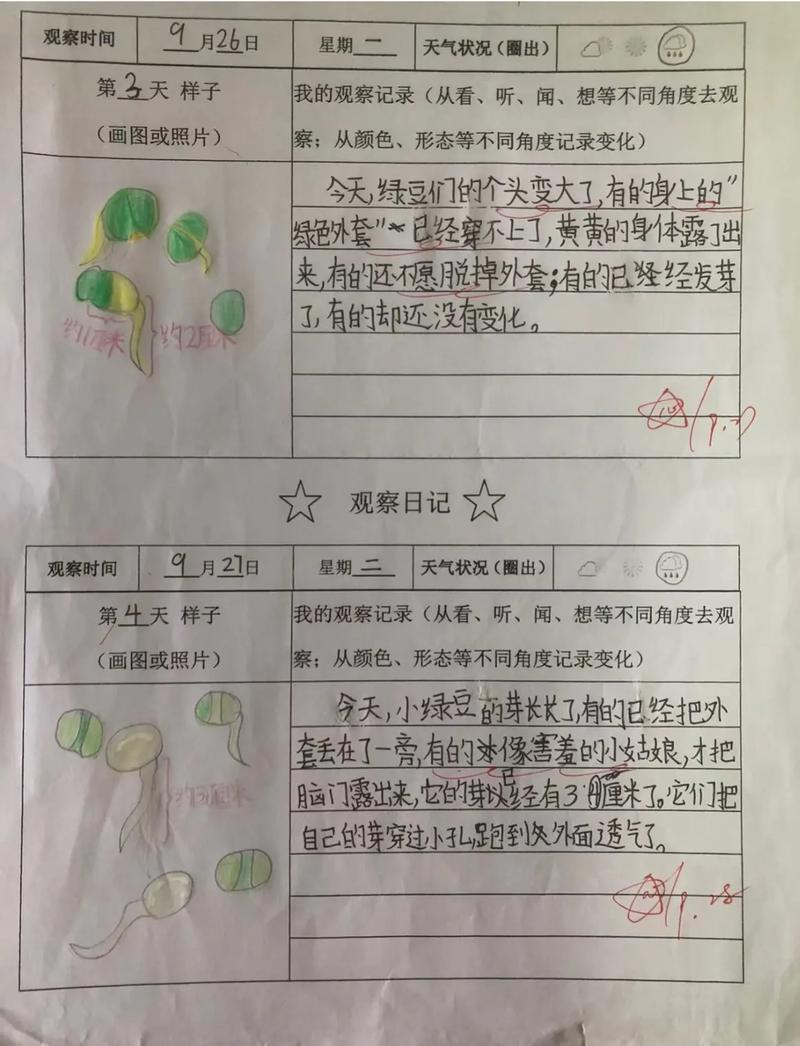 观察时间 9月26日 星期一 天气状况（圈出）
第3天 样子
（画图或照片）
我的观察记录（从看、听、闻、想等不同角度去观
察；从颜色、形态等不同角度记录变化）
今天,绿豆们的个头变大了,有的身上的"
绿色外套"已经穿不上了,黄黄的身体露了出
来,有的还不愿脱掉外套;有的已经经发芽
了,有的却还没有变化。
约1厘米 约2厘米
☆ 观察日记 ☆
观察时间 9月27日 星期二 天气状况（圈出）
第4天 样子
（画图或照片）
我的观察记录（从看、听、闻、想等不同角度去观
察；从颜色、形态等不同角度记录变化）
今天,小绿豆的芽长长了,有的已经把外
套丢在了一旁,有的像害羞的小姑娘,才把
脑门露出来,它的芽已经有3厘米了。它们把
自己的芽穿过小孔,跑到外面透气了。
约3厘米